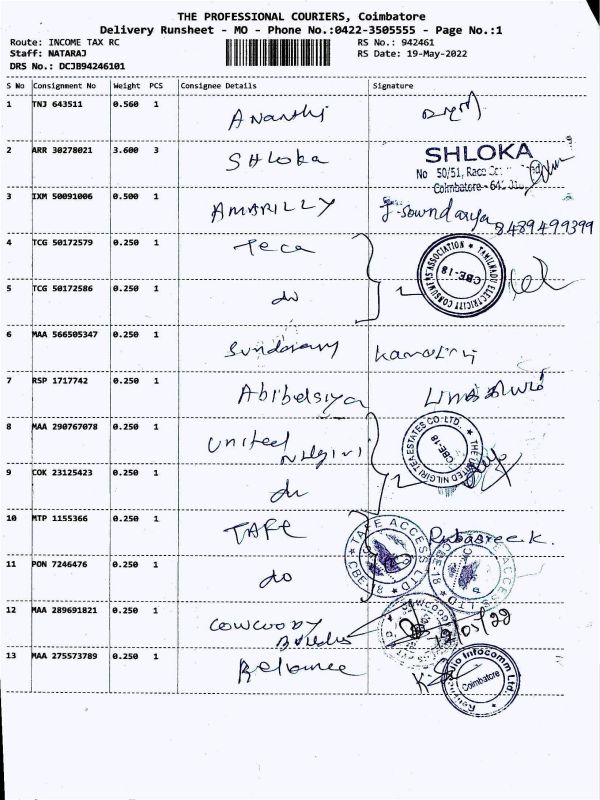 THE PROFESSIONAL COURIERS, Coimbatore
Delivery Runsheet - MO - Phone No.:0422-3505555 - Page No.:1
Route: INCOME TAX RC RS No.: 942461
Staff: NATARAJ RS Date: 19-May-2022
DRS No.: DCJB94246101
S No Consignment No Weight PCS Consignee Details Signature
1 TNJ 643511 0.560 1 Ananthi
2 ARR 30278021 3.600 3 SHloka SHLOKA
No 50/51, Race
Coimbatore - 641
3 IXM 50091006 0.500 1 AMARILLY J. Soundarya
8489499399
4 TCG 50172579 0.250 1 Teca TAMILNADU ELECTRICITY CONSUMERS ASSOCIATION ★ CBE-18
5 TCG 50172586 0.250 1 do
6 MAA 566505347 0.250 1
7 RSP 1717742 0.250 1
8 MAA 290767078 0.250 1 United
Nilgiri THE UNITED NILGIRI TEA ESTATES CO. LTD. ★ CBE-18
9 COK 23125423 0.250 1 do
10 MTP 1155366 0.250 1 TAFE Rubasree.K.
TAFE ACCESS LTD ★ CBE-18
ACCESS LTD ★ CBE-18
11 PON 7246476 0.250 1 do
12 MAA 289691821 0.250 1 COWCOODY
Builders
13 MAA 275573789 0.250 1 Reliance
Infocomm Ltd. Coimbatore